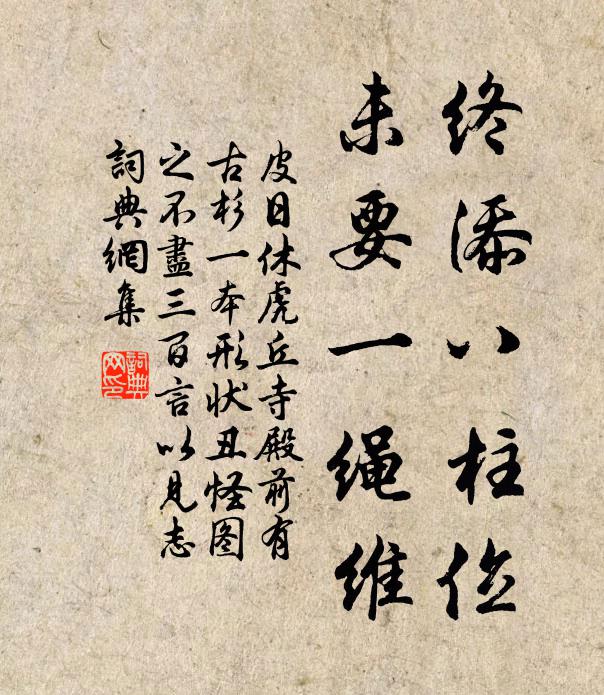 终添八柱位
未要一绳维
皮日休虎丘寺殿前有
古杉一本形状丑怪图
之不盡三百言以见志
詞典網集
詞典
网印